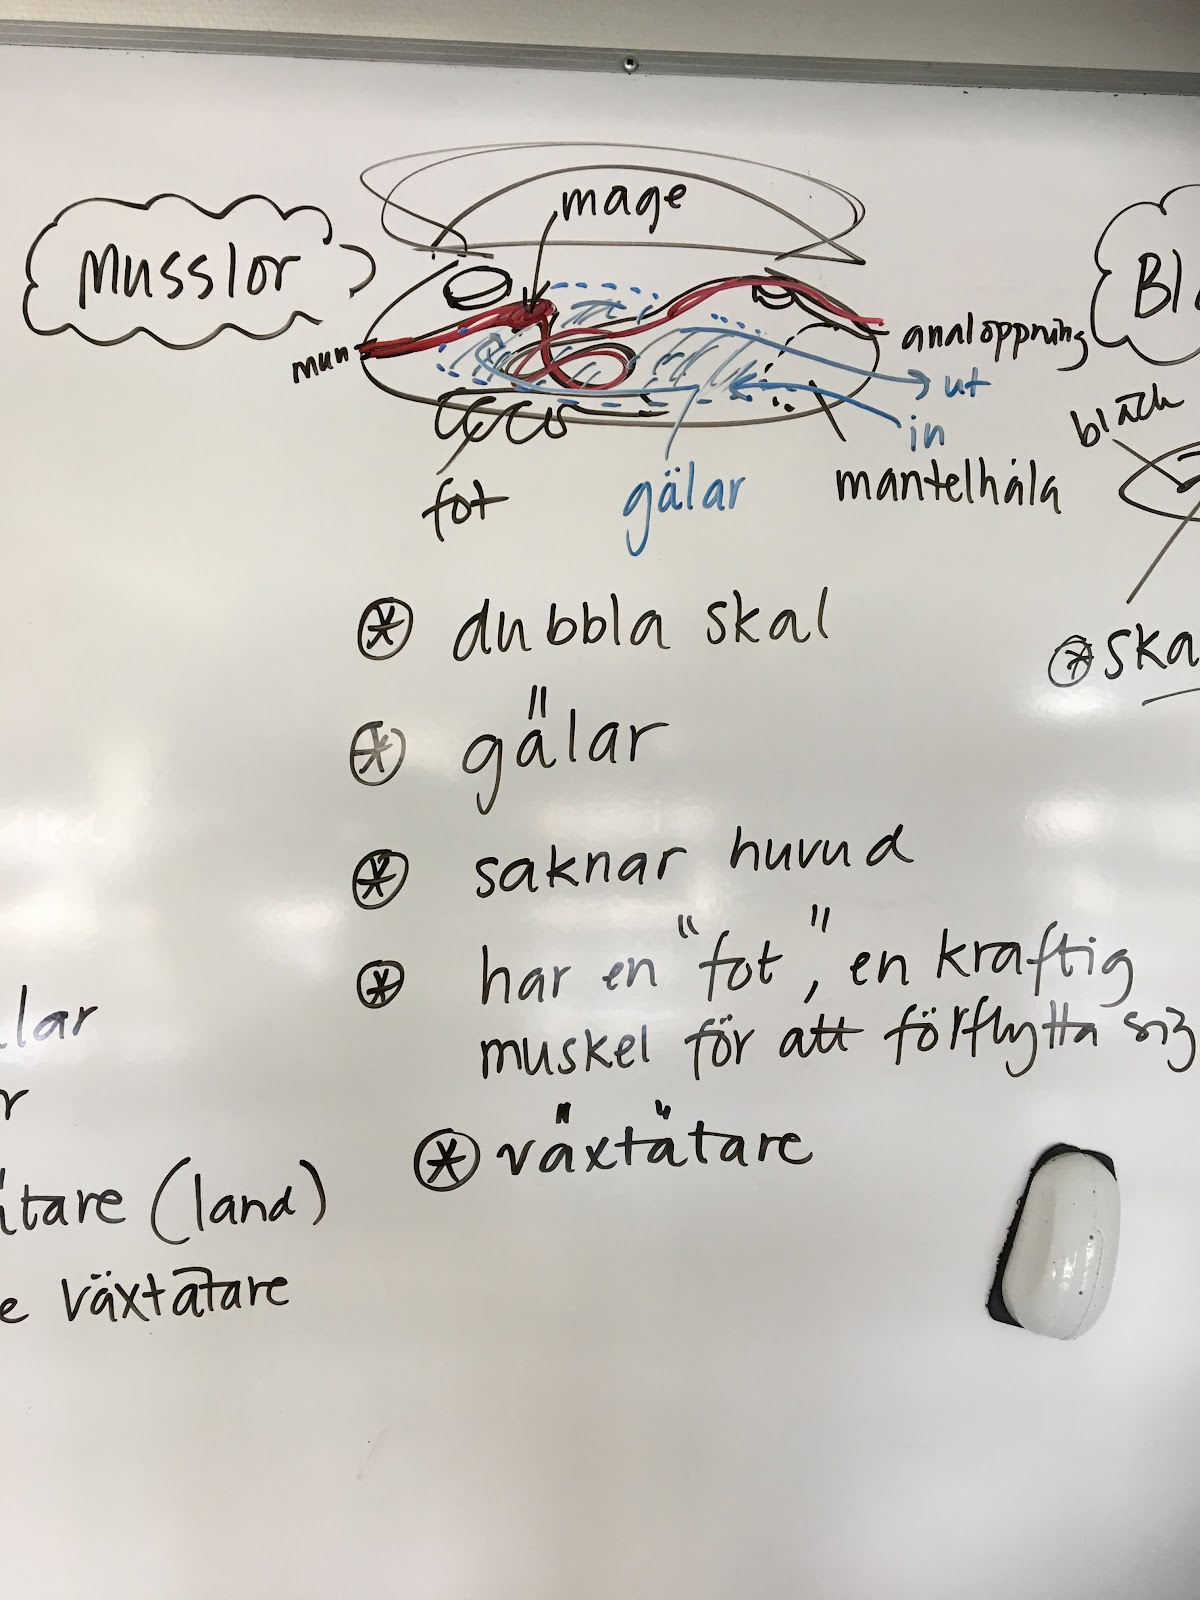 Musslor
mage
mun
analöppning
ut
in
fot
gälar
mantelhåla
dubbla skal
gälar
saknar huvud
har en "fot", en kraftig
muskel för att förflytta sig
växtätare
(land)
växtätare
bläck